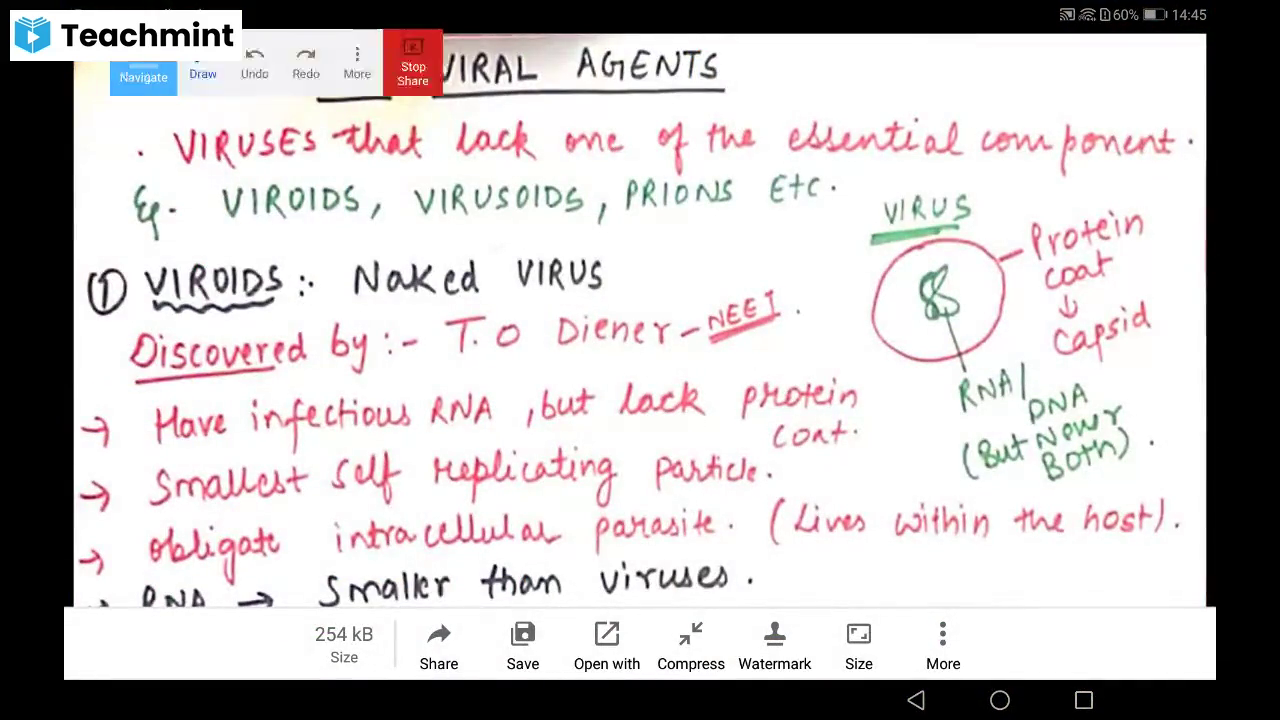 60% 14:45
Teachmint
Navigate Draw Undo Redo More Stop Share
VIRAL AGENTS
. VIRUSES that lack one of the essential component.
Eg. VIROIDS, VIRUSOIDS, PRIONS Etc.
VIRUS
Protein coat
↓
Capsid
RNA/
DNA
(But Never
Both).
① VIROIDS :- Naked VIRUS
Discovered by :- T.O Diener - NEET.
→ Have infectious RNA, but lack protein
coat.
→ Smallest self replicating particle.
→ obligate intracellular parasite. (Lives within the host).
RNA → Smaller than viruses.
254 kB
Size
Share Save Open with Compress Watermark Size More